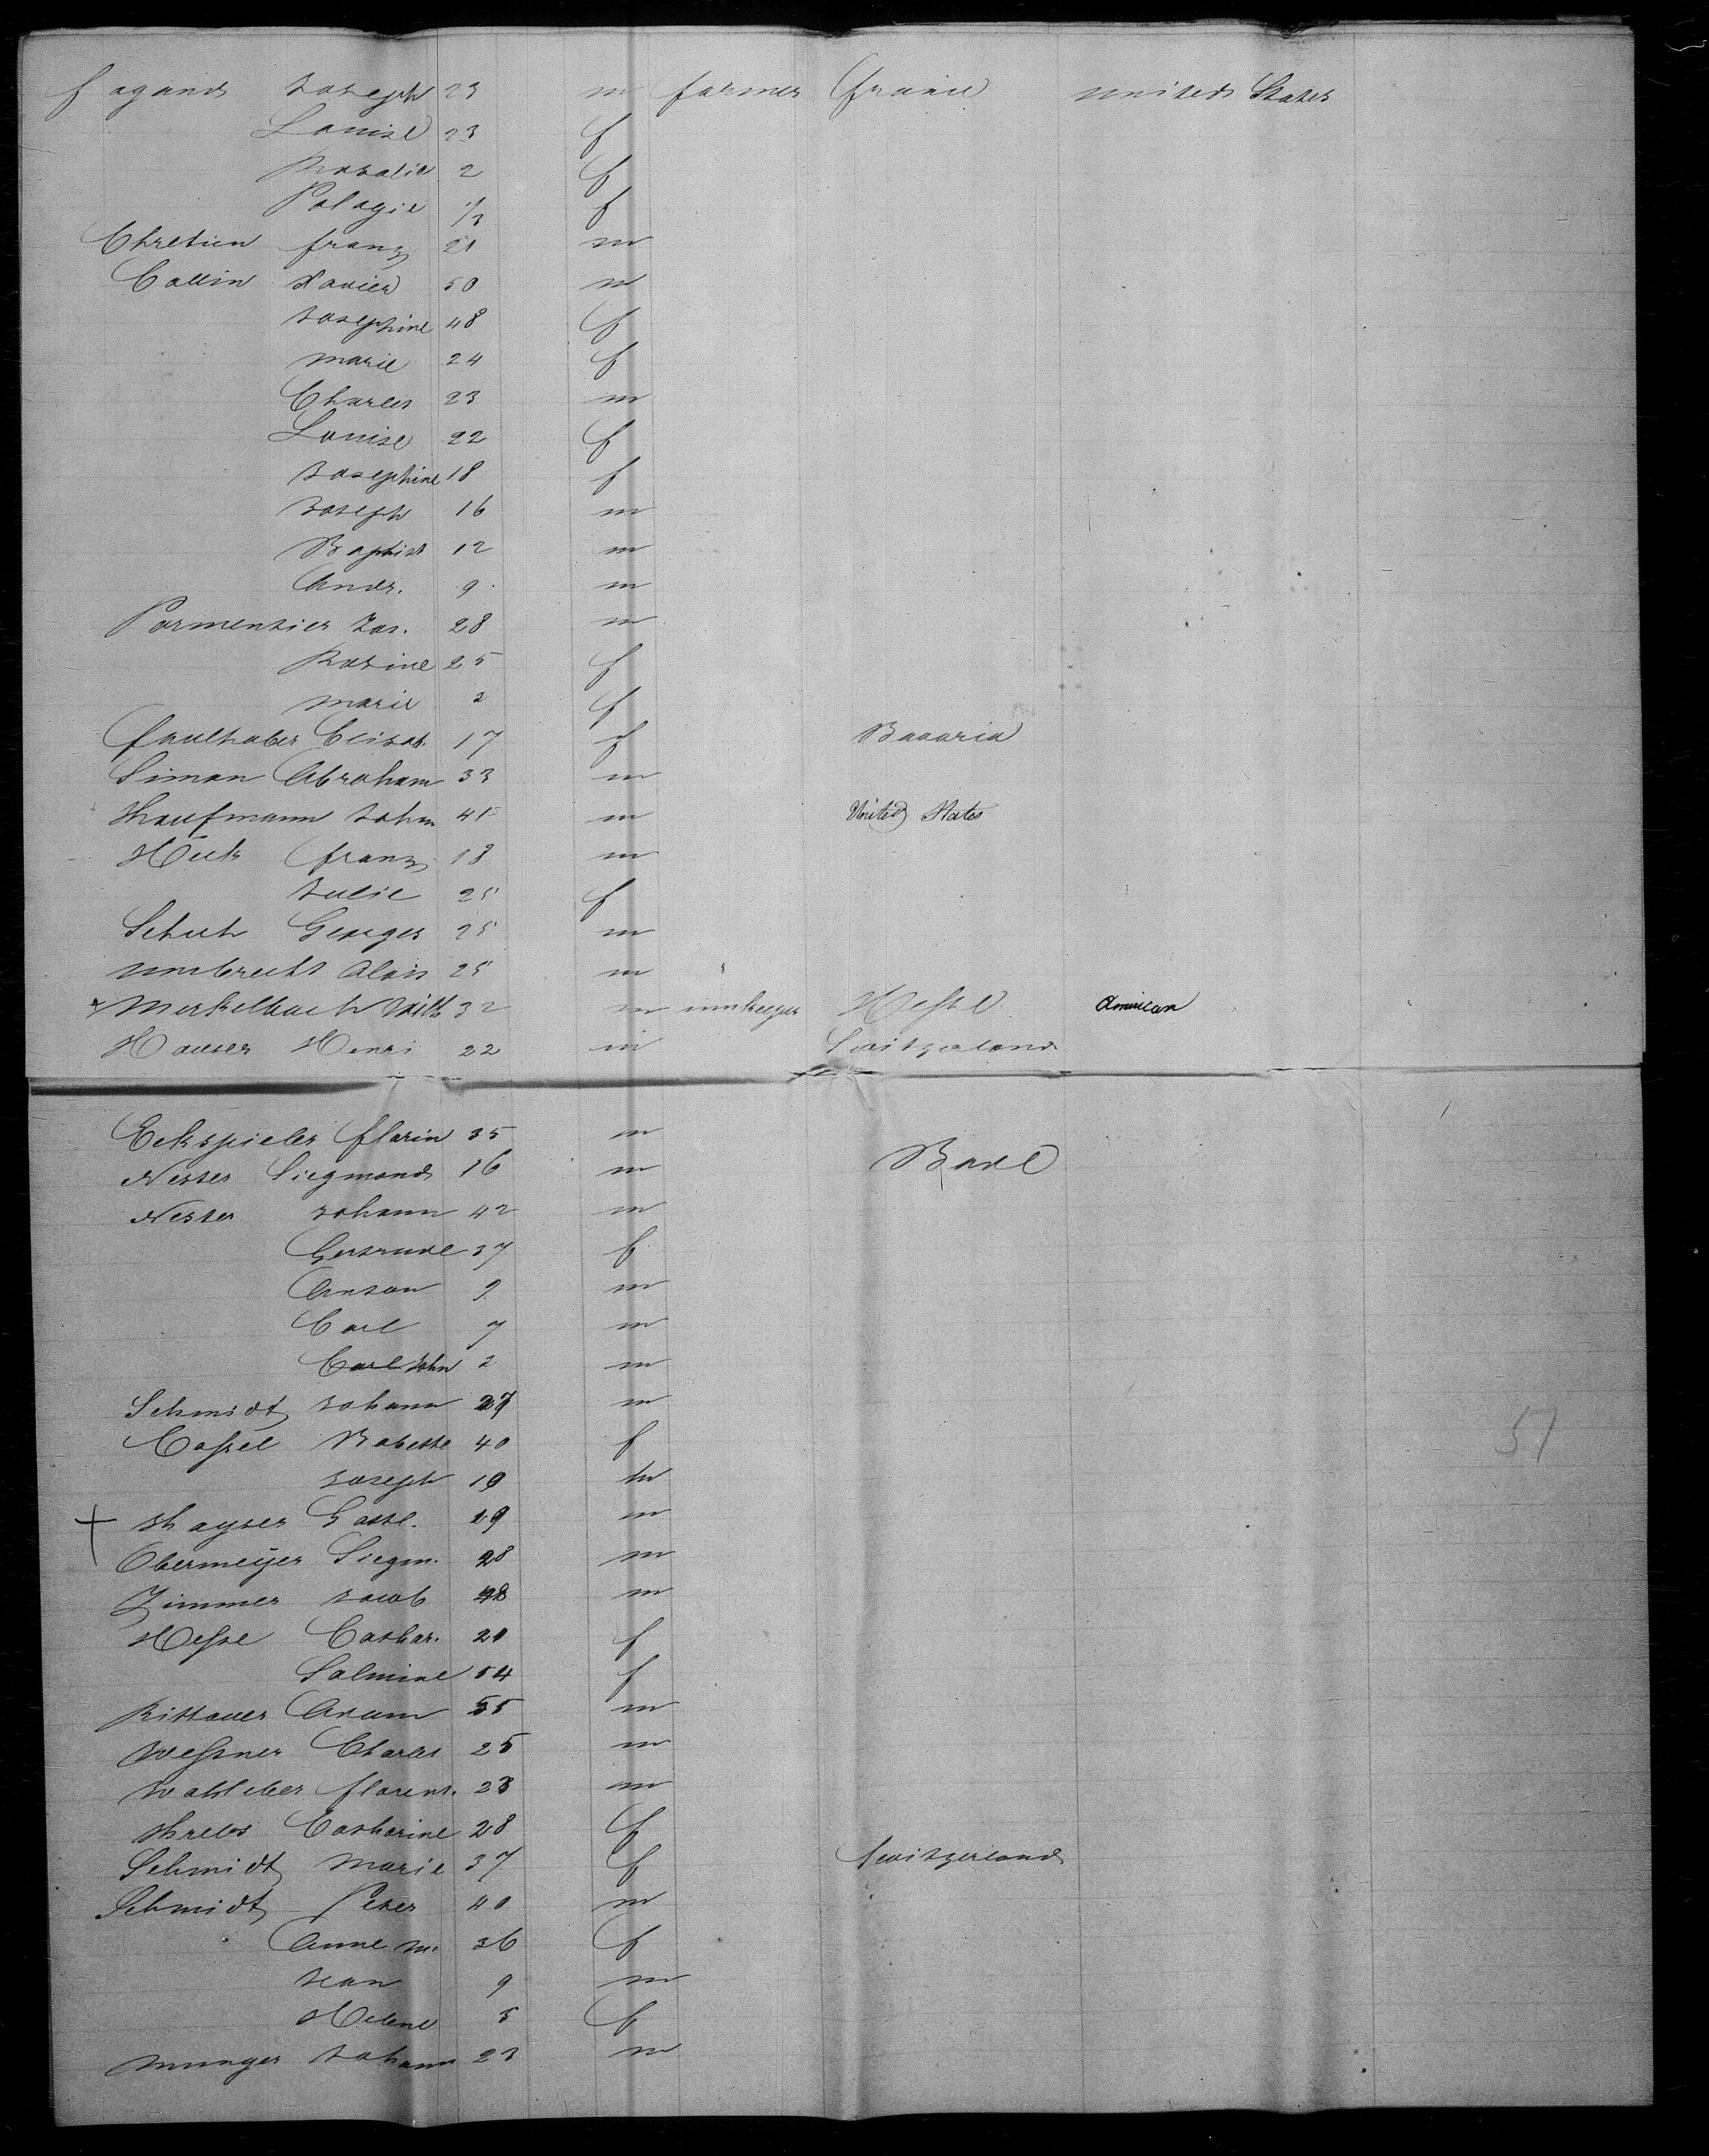 fagand Joseph 23 m farmer france united States
Louise 23 f
Rosalie 2 f
Palagie 1/3 f
Chretien franz 21 m
Collin Xavier 50 m
Josephine 48 f
marie 24 f
Charles 23 m
Louise 22 f
Josephine 18 f
Joseph 16 m
Baptist 12 m
Andr. 9 m
Parmentier Jos. 28 m
Rosine 25 f
marie 2 f
faulhaber Elisab. 17 f Bavaria
Simon Abraham 33 m
Kaufmann John 41 m United States
Heck franz 18 m
Julie 25 f
Schuh Georges 25 m
umbrecht Alois 25 m
Merkelbach Wilh 32 m innkeeper Hesse American
Hauser Henri 22 m Switzerland
Eckspieler florin 35 m
Nester Siegmond 16 m Bade
Nester Johann 42 m
Gertrude 37 f
Anton 9 m
Carl 7 m
Carl John 2 m
Schmidt Johann 27 m
Cassel Babette 40 f
51
Joseph 19 m
+ Kayser 29 m
Obermeijer Siegm. 28 m
Zimmer Jacob 48 m
Hesse Cathar. 21 f
Salmine 54 f
Rittauer Adam 55 m
Wessner Charles 25 m
florent. 23 m
Krebs Catharine 28 f
Schmidt marie 37 f Switzerland
Schmidt Peter 40 m
Anne m. 36 f
Jean 9 m
Helene 5 f
munger Johann 23 m